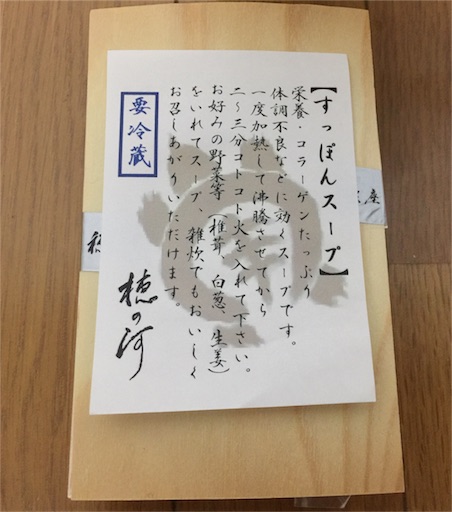 【すっぽんスープ】
栄養・コラーゲンたっぷり
体調不良などに効くスープです。
一度加熱して沸騰させてから
二〜三分コトコト火を入れて下さい。
お好みの野菜等(椎茸、白葱、生姜)
をいれてスープ、雑炊でもおいしく
お召しあがりいただけます。
要冷蔵
穂の河
座